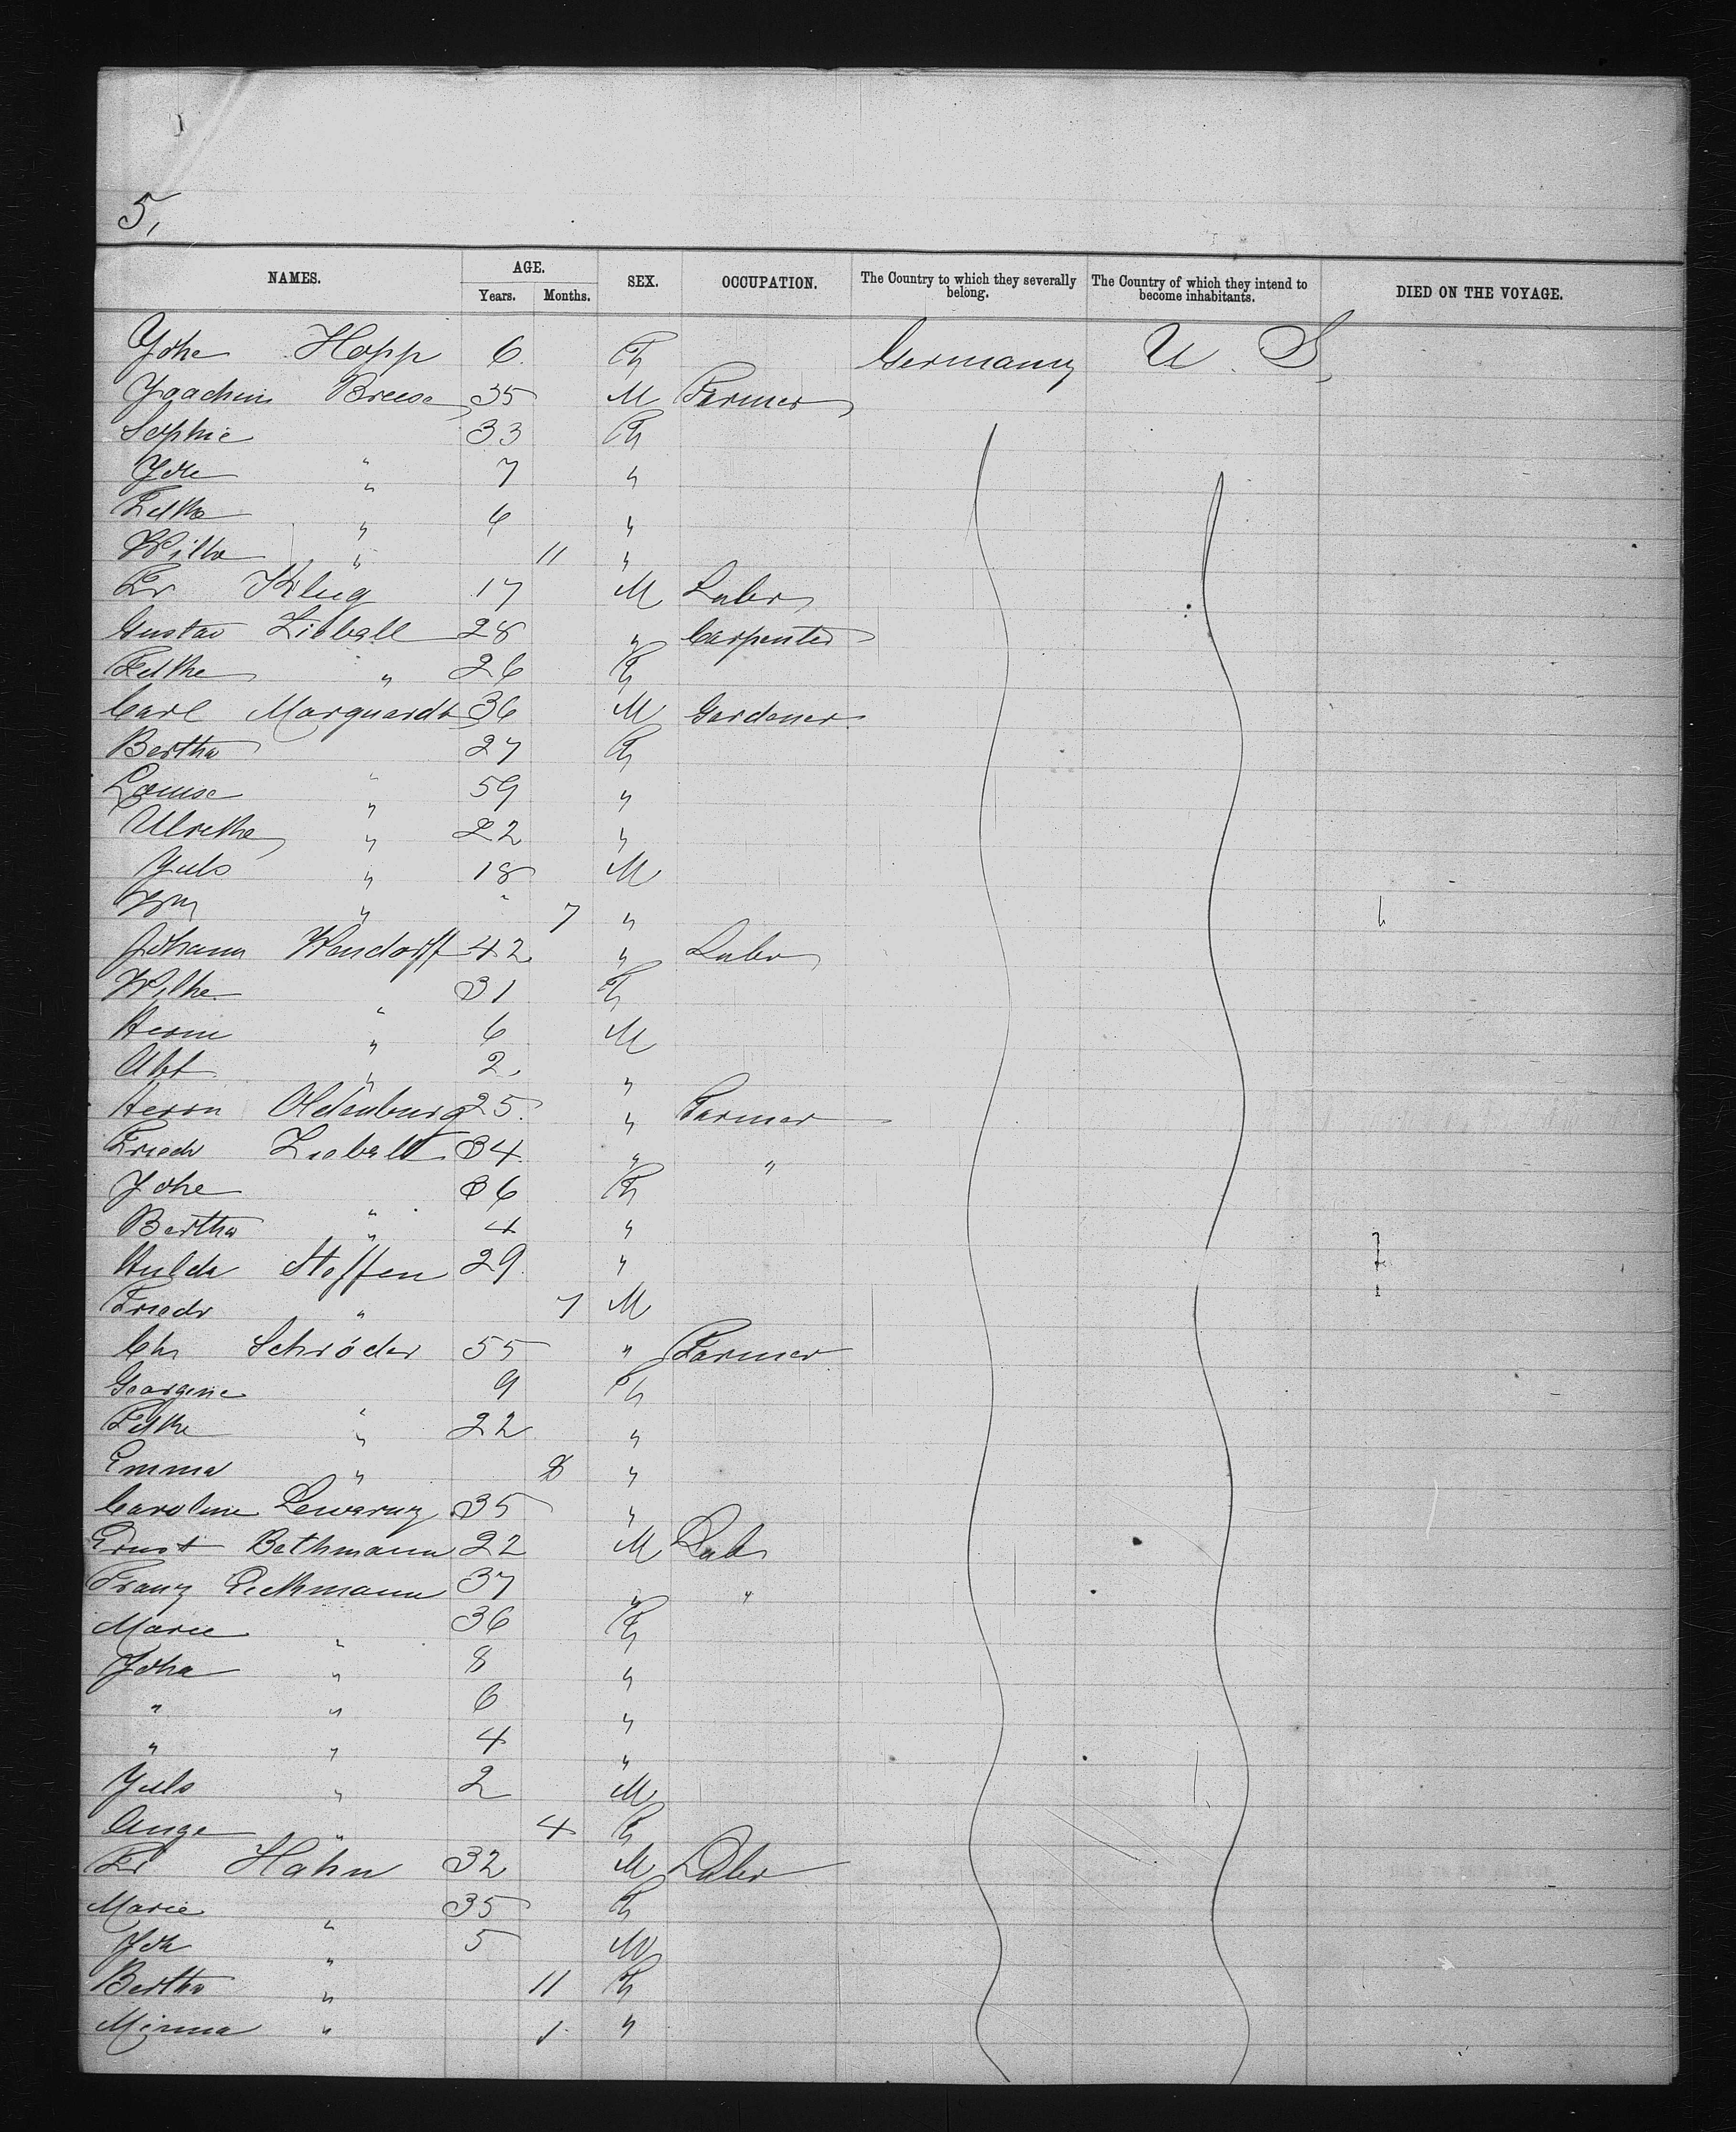 5,
NAMES. AGE. SEX. OCCUPATION. The Country to which they severally belong. The Country of which they intend to become inhabitants. DIED ON THE VOYAGE.
Years. Months.
Johe Hopp 6 Fh Germany U. S,
Joachim Breese 35 M Farmer
Sophie " 33 Fh
Joh " 7 "
" 6 "
Wilha " 11 "
Fr Klug 17 M Labr
Gustav Liball 28 " Carpenter
" 26 Fh
Carl Marquardt 36 M Gardener
Bertha " 27 Fh
Louise " 59 "
Ulrethe " 22 "
Juls " 18 M
Wm " " 7 "
Johann Wendorff 42 " Labr
Wilhe " 31 Fh
Herm " 6 M
Abt " 2 "
Herm Oldenburg 25 " Farmer
Friedr Lieball 34 " "
Johe " 36 Fh
Bertha " 4 "
Hulda Steffen 29 "
Friedr " 7 M
Chr Schröder 55 " Farmer
Georgine " 9 Fh
" 22 "
Emma " 8 "
Caroline 35 "
Ernst Bethmann 22 M Lab
Franz Dickmann 37 " "
Marie " 36 Fh
Joha " 8 "
" " 6 "
" " 4 "
Juls " 2 M
Auge " 4 Fh
Fr Hahn 32 M Labr
Marie " 35 Fh
Joh " 5 M
Bertha " 11 Fh
Minna " 1 "